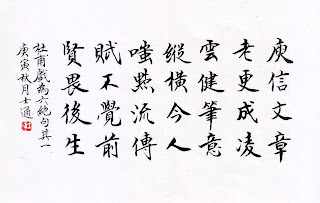 庾信文章
老更成凌
雲健筆意
縱橫今人
嗤點流傳
賦不覺前
賢畏後生
杜甫戲為六絕句其一
庚寅秋月士通